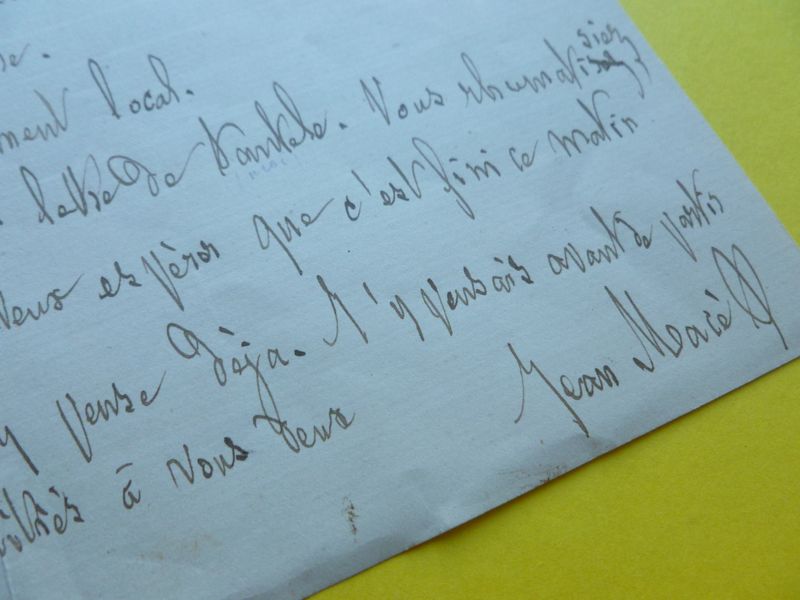 se.
ment local.
lettre de Nous rhumatisiez
veux espérer que c'est fini ce matin
y pense déjà. J'y pensais avant de partir
à vous deux
Jean Macé